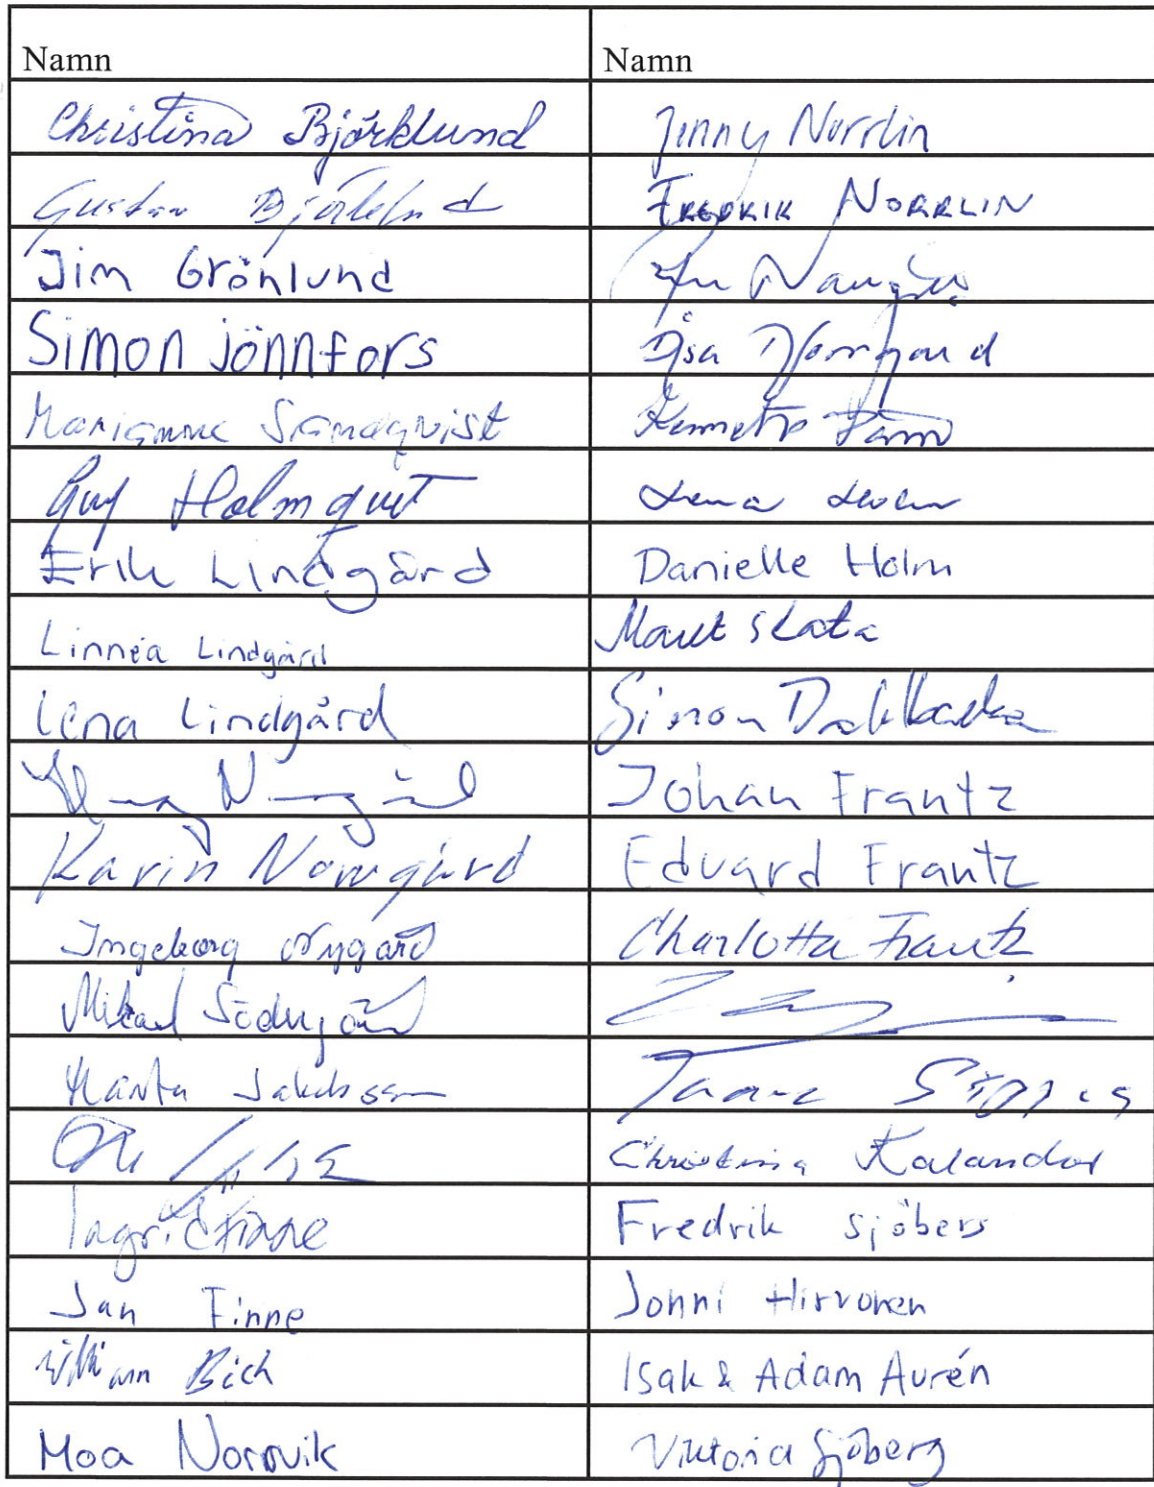 Namn Namn
Christina Björklund Jenny Norrlin
Gustav Björklund FREDRIK NORRLIN
Jim Grönlund
Simon Jönnfors Åsa Norrgård
Marianne Strandqvist Kenneth
Guy Holmqvist Lena
Erik Lindgård Danielle Holm
Linnéa Lindgård Skata
Lena Lindgård Simon Dahlbacka
Johan Frantz
Karin Norrgård Edvard Frantz
Ingeborg Nygård Charlotta Frantz
Mikael Södergård
Jakobsson
Christina Kalander
Ingrid Finne Fredrik Sjöberg
Jan Finne Jonni Hirvonen
William Bäck Isak & Adam Aurén
Moa Norrvik Viktoria Sjöberg